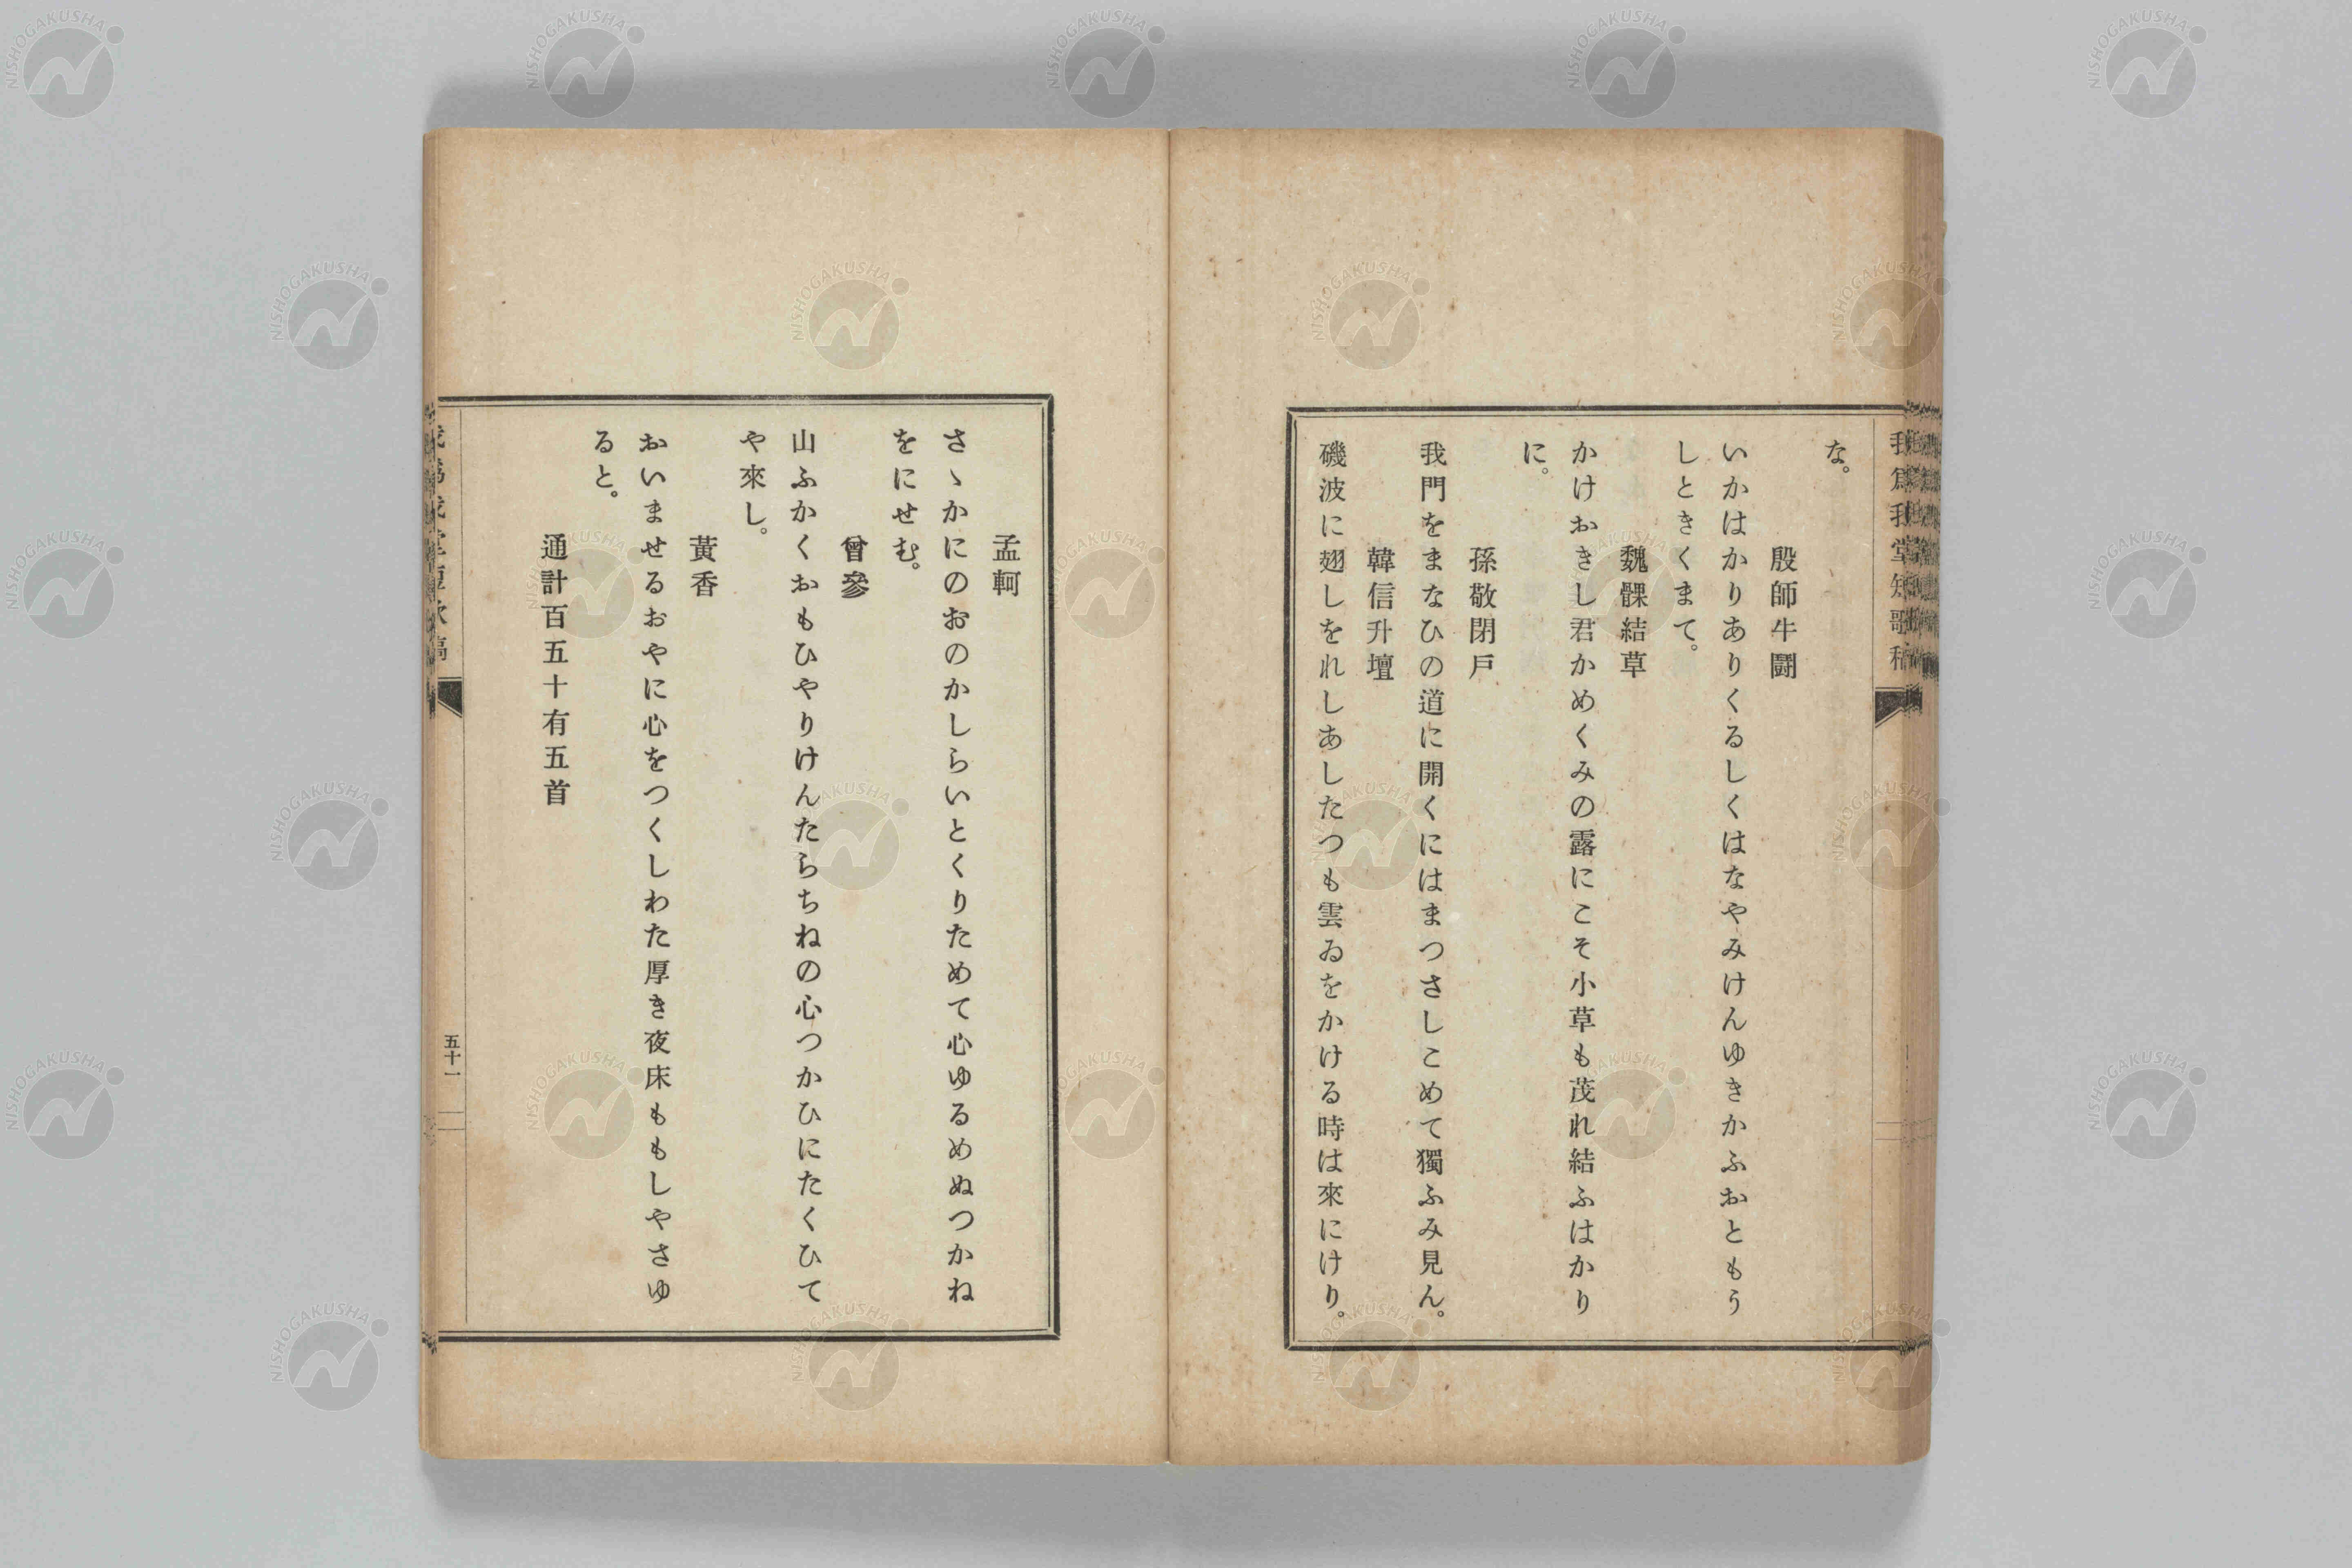 な。
殷師牛鬪
いかはかりありくるしくはなやみけんゆきかふおともう
しときくまて。
魏髁結草
かけおきし君かめくみの露にこそ小草も茂れ結ふはかり
に。
孫敬閉戸
我門をまなひの道に開くにはまつさしこめて獨ふみ見ん。
韓信升壇
磯波に翅しをれしあしたつも雲ゐをかける時は來にけり。
孟軻
さゝかにのおのかしらいとくりためて心ゆるめぬつかね
をにせむ。
曾參
山ふかくおもひやりけんたらちねの心つかひにたくひて
や來し。
黃香
おいませるおやに心をつくしわた厚き夜床ももしやさゆ
ると。
通計百五十有五首
五十一
NISHOGAKUSHA